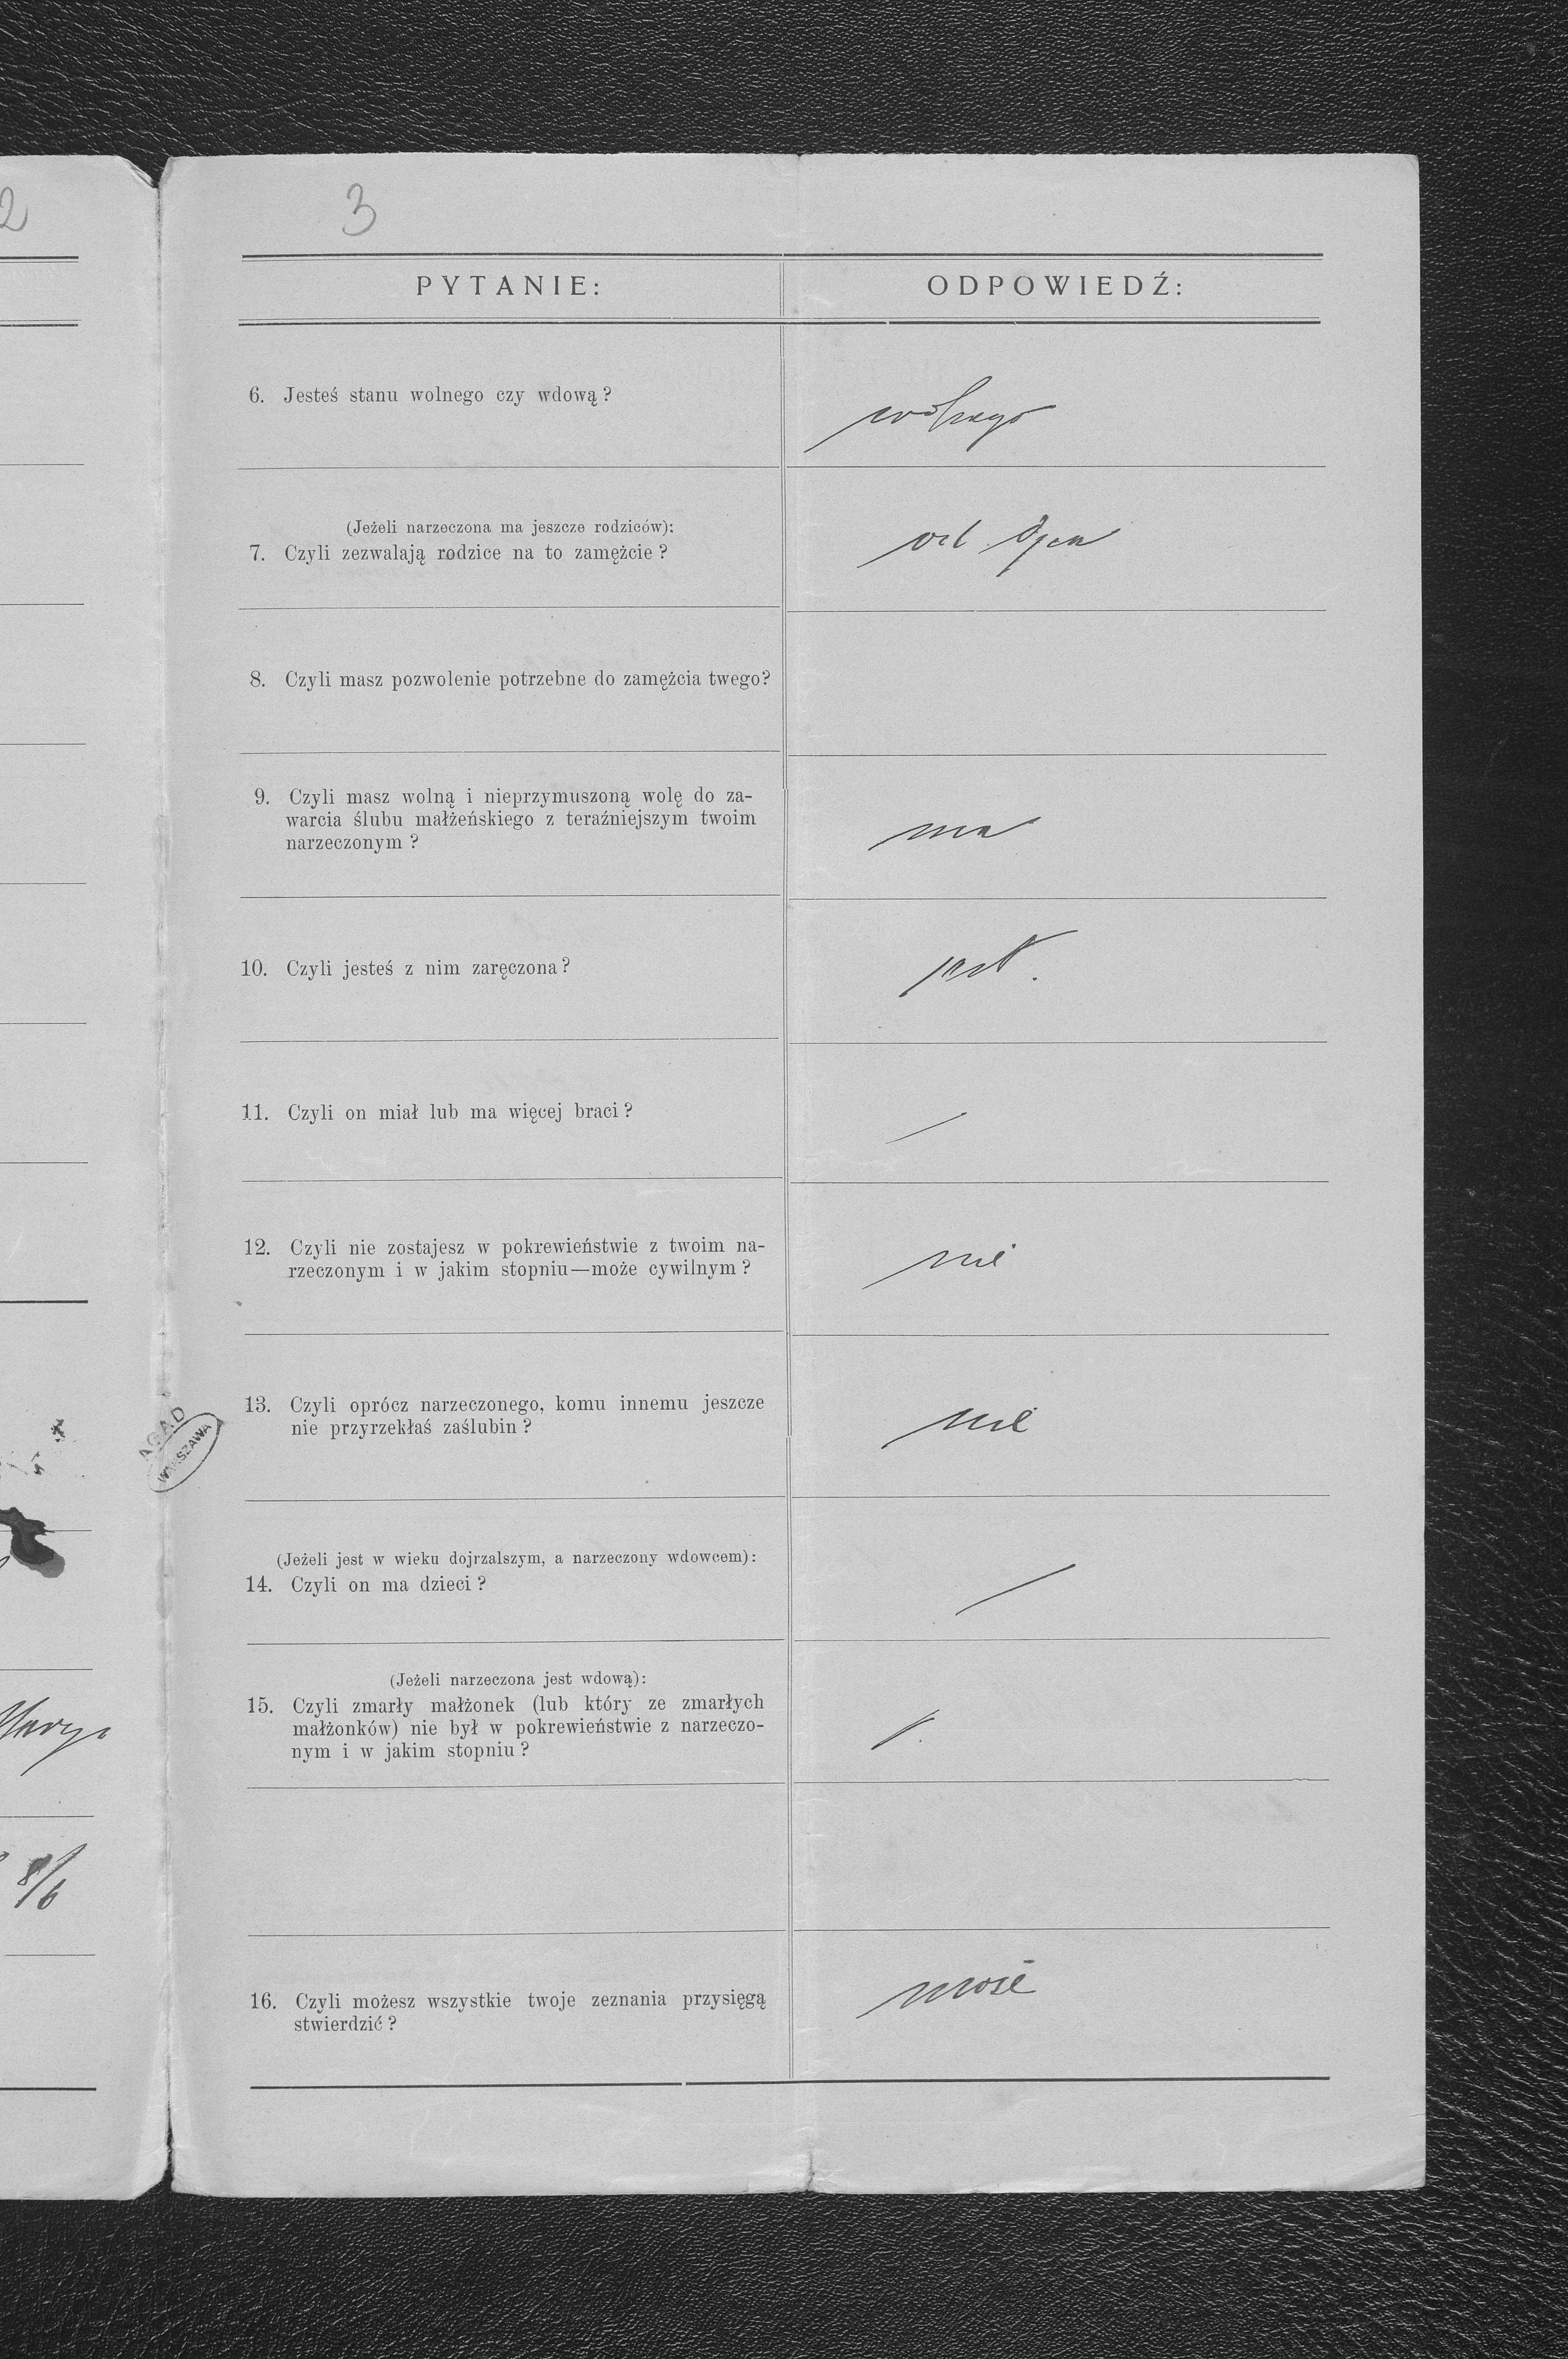 2
3
PYTANIE:
ODPOWIEDŹ:
6. Jesteś stanu wolnego czy wdową?
wolnego
(Jeżeli narzeczona ma jeszcze rodziców):
7. Czyli zezwalają rodzice na to zamęźcie?
od Ojca
8. Czyli masz pozwolenie potrzebne do zamęźcia twego?
9. Czyli masz wolną i nieprzymuszoną wolę do za-
warcia ślubu małżeńskiego z teraźniejszym twoim
narzeczonym?
ma
10. Czyli jesteś z nim zaręczona?
jest.
11. Czyli on miał lub ma więcej braci?
—
12. Czyli nie zostajesz w pokrewieństwie z twoim na-
rzeczonym i w jakim stopniu—może cywilnym?
nie
13. Czyli oprócz narzeczonego, komu innemu jeszcze
nie przyrzekłaś zaślubin?
nie
AGAD
WARSZAWA
(Jeżeli jest w wieku dojrzalszym, a narzeczony wdowcem):
14. Czyli on ma dzieci?
—
(Jeżeli narzeczona jest wdową):
15. Czyli zmarły małżonek (lub który ze zmarłych
małżonków) nie był w pokrewieństwie z narzeczo-
nym i w jakim stopniu?
8/6
16. Czyli możesz wszystkie twoje zeznania przysięgą
stwierdzić?
może